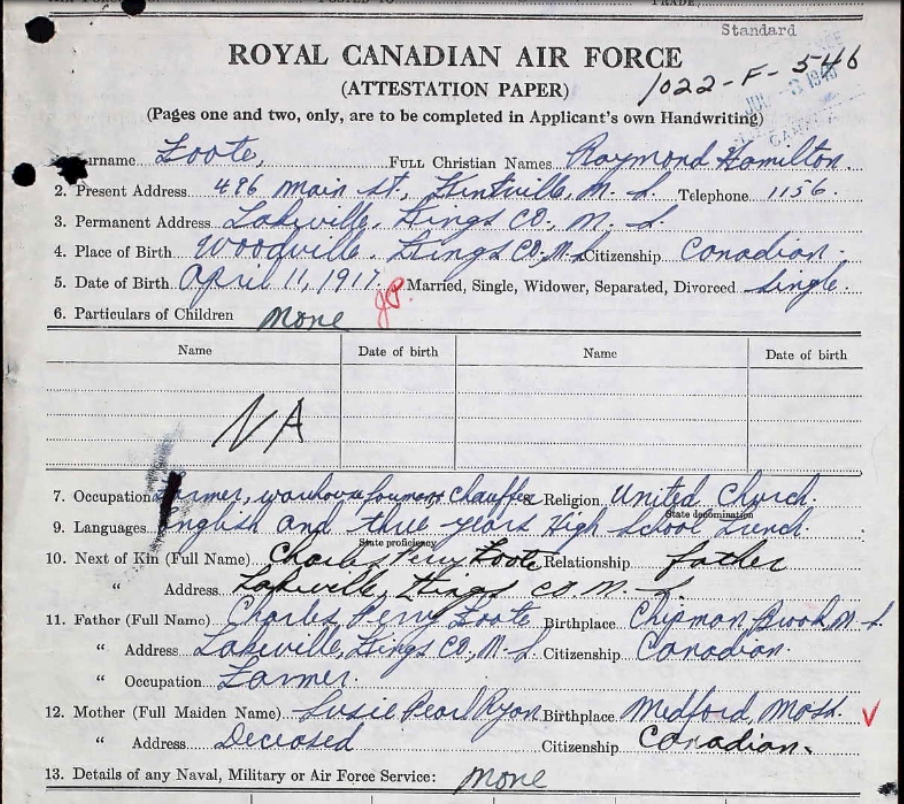 Standard
ROYAL CANADIAN AIR FORCE
1022-F-546
(ATTESTATION PAPER)
(Pages one and two, only, are to be completed in Applicant's own Handwriting)
urname Foote, FULL Christian Names Raymond Hamilton.
2. Present Address 496 Main St., Kentville, N. S. Telephone 1156.
3. Permanent Address Lakeville, Kings Co., N. S.
4. Place of Birth Woodville, Kings Co., N.S. Citizenship Canadian.
5. Date of Birth April 11, 1917. Married, Single, Widower, Separated, Divorced Single.
6. Particulars of Children None
Name Date of birth Name Date of birth
NA
7. Occupation Farmer, warehouse foreman, chauffer 8. Religion United Church.
State denomination
9. Languages English and three years High School French.
State proficiency
10. Next of Kin (Full Name) Charles Perry Foote Relationship father
" Address Lakeville, Kings Co. N. S.
11. Father (Full Name) Charles Perry Foote Birthplace Chipman Brook, N.S.
" Address Lakeville, Kings Co., N.S. Citizenship Canadian.
" Occupation Farmer.
12. Mother (Full Maiden Name) Susie Pearl Ryan Birthplace Medford, Mass.
" Address Deceased Citizenship Canadian.
13. Details of any Naval, Military or Air Force Service: None